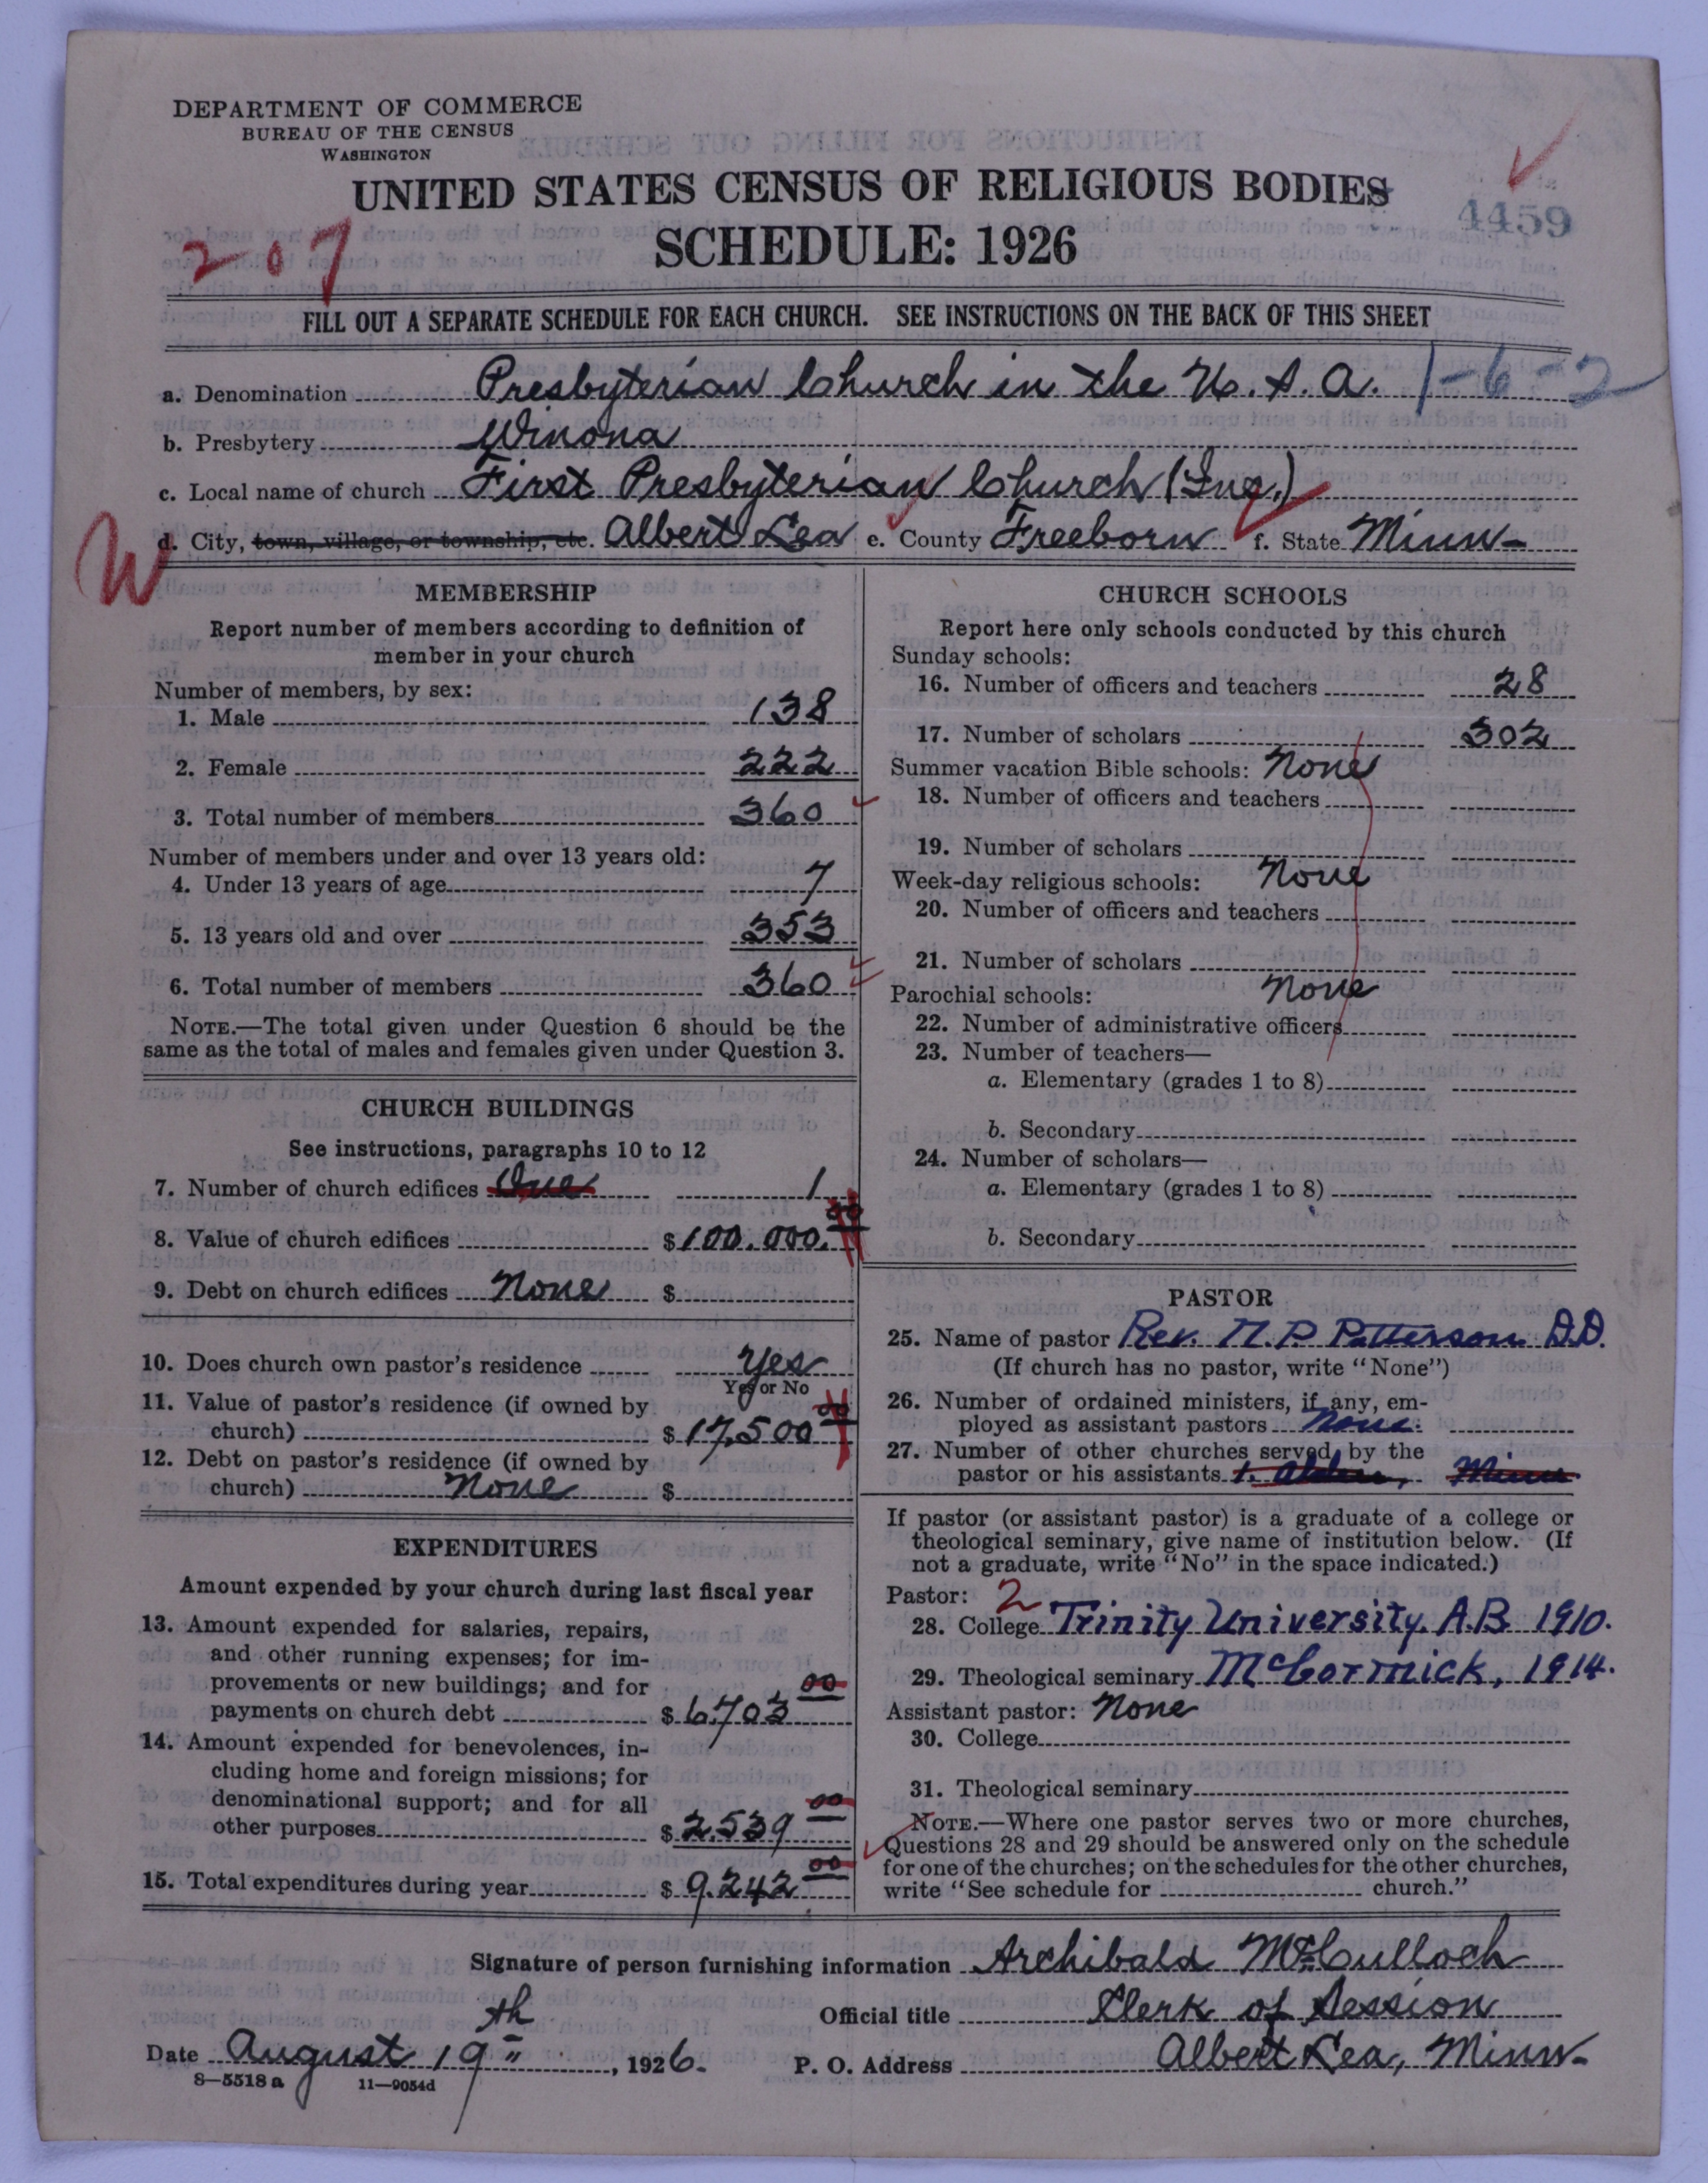 DEPARTMENT OF COMMERCE
BUREAU OF THE CENSUS
WASHINGTON
UNITED STATES CENSUS OF RELIGIOUS BODIES
4459
SCHEDULE: 1926
207
FILL OUT A SEPARATE SCHEDULE FOR EACH CHURCH. SEE INSTRUCTIONS ON THE BACK OF THIS SHEET
a. Denomination Presbyterian Church in the U.S.A. 1-6-2
b. Presbytery Winona
c. Local name of church First Presbyterian Church (Inc.)
W
d. City, town, village, or township, etc. Albert Lea e. County Freeborn f. State Minn-
MEMBERSHIP
Report number of members according to definition of
member in your church
Number of members, by sex:
1. Male 138
2. Female 222
3. Total number of members 360
Number of members under and over 13 years old:
4. Under 13 years of age 7
5. 13 years old and over 353
6. Total number of members 360
NOTE.—The total given under Question 6 should be the
same as the total of males and females given under Question 3.
CHURCH BUILDINGS
See instructions, paragraphs 10 to 12
7. Number of church edifices One 1
8. Value of church edifices $100.000.00
9. Debt on church edifices None $
10. Does church own pastor's residence Yes
Yes or No
11. Value of pastor's residence (if owned by
church) $17,500 00
12. Debt on pastor's residence (if owned by
church) None $
EXPENDITURES
Amount expended by your church during last fiscal year
13. Amount expended for salaries, repairs,
and other running expenses; for im-
provements or new buildings; and for
payments on church debt $6,703 00
14. Amount expended for benevolences, in-
cluding home and foreign missions; for
denominational support; and for all
other purposes $2.539 00
15. Total expenditures during year $9.242 00
CHURCH SCHOOLS
Report here only schools conducted by this church
Sunday schools:
16. Number of officers and teachers 28
17. Number of scholars 302
Summer vacation Bible schools: None
18. Number of officers and teachers
19. Number of scholars
Week-day religious schools: None
20. Number of officers and teachers
21. Number of scholars
Parochial schools: None
22. Number of administrative officers
23. Number of teachers—
a. Elementary (grades 1 to 8)
b. Secondary
24. Number of scholars—
a. Elementary (grades 1 to 8)
b. Secondary
PASTOR
25. Name of pastor Rev. M.P. Patterson D.D.
(If church has no pastor, write "None")
26. Number of ordained ministers, if any, em-
ployed as assistant pastors None.
27. Number of other churches served by the
pastor or his assistants 1. Alden, Minn
If pastor (or assistant pastor) is a graduate of a college or
theological seminary, give name of institution below. (If
not a graduate, write "No" in the space indicated.)
Pastor: 2
28. College Trinity University. A.B. 1910.
29. Theological seminary McCormick, 1914.
Assistant pastor: None
30. College
31. Theological seminary
NOTE.—Where one pastor serves two or more churches,
Questions 28 and 29 should be answered only on the schedule
for one of the churches; on the schedules for the other churches,
write "See schedule for church."
Signature of person furnishing information Archibald McCulloch
Official title Clerk of Session
Date August 19th, 1926. P. O. Address Albert Lea, Minn-
8—5518a 11—9054d